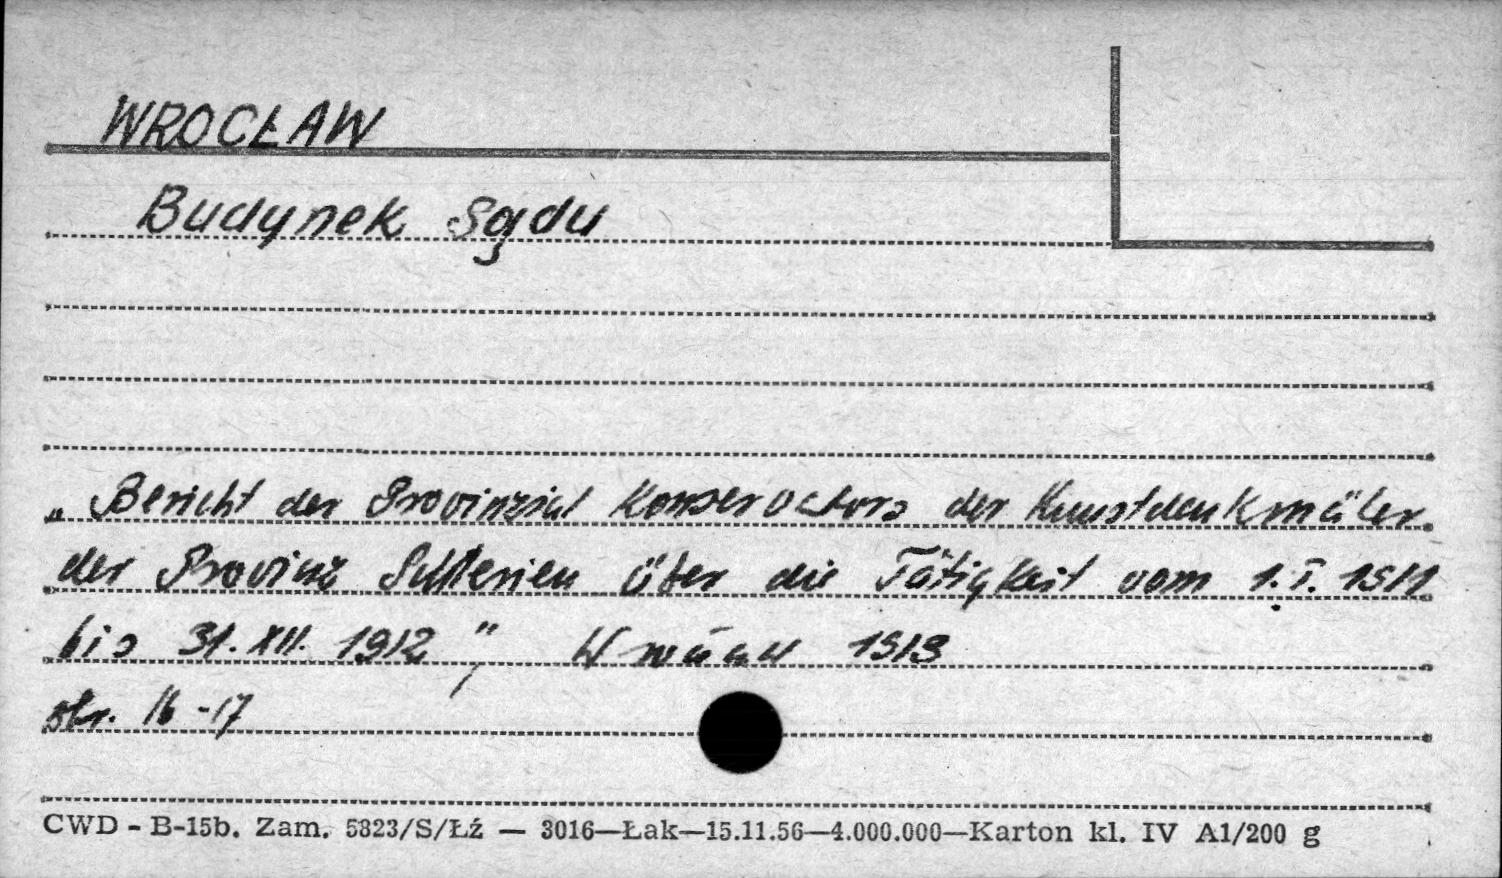 WROCŁAW
Budynek Sądu
„Bericht des Provinzial Konservators der Kunstdenkmäler
der Provinz Schlesien über die Tätigkeit vom 1.I. 1911
bis 31.XII. 1912", W 1913
str. 16-17
CWD - B-15b. Zam. 5823/S/Łź — 3016—Łak—15.11.56—4.000.000—Karton kl. IV A1/200 g